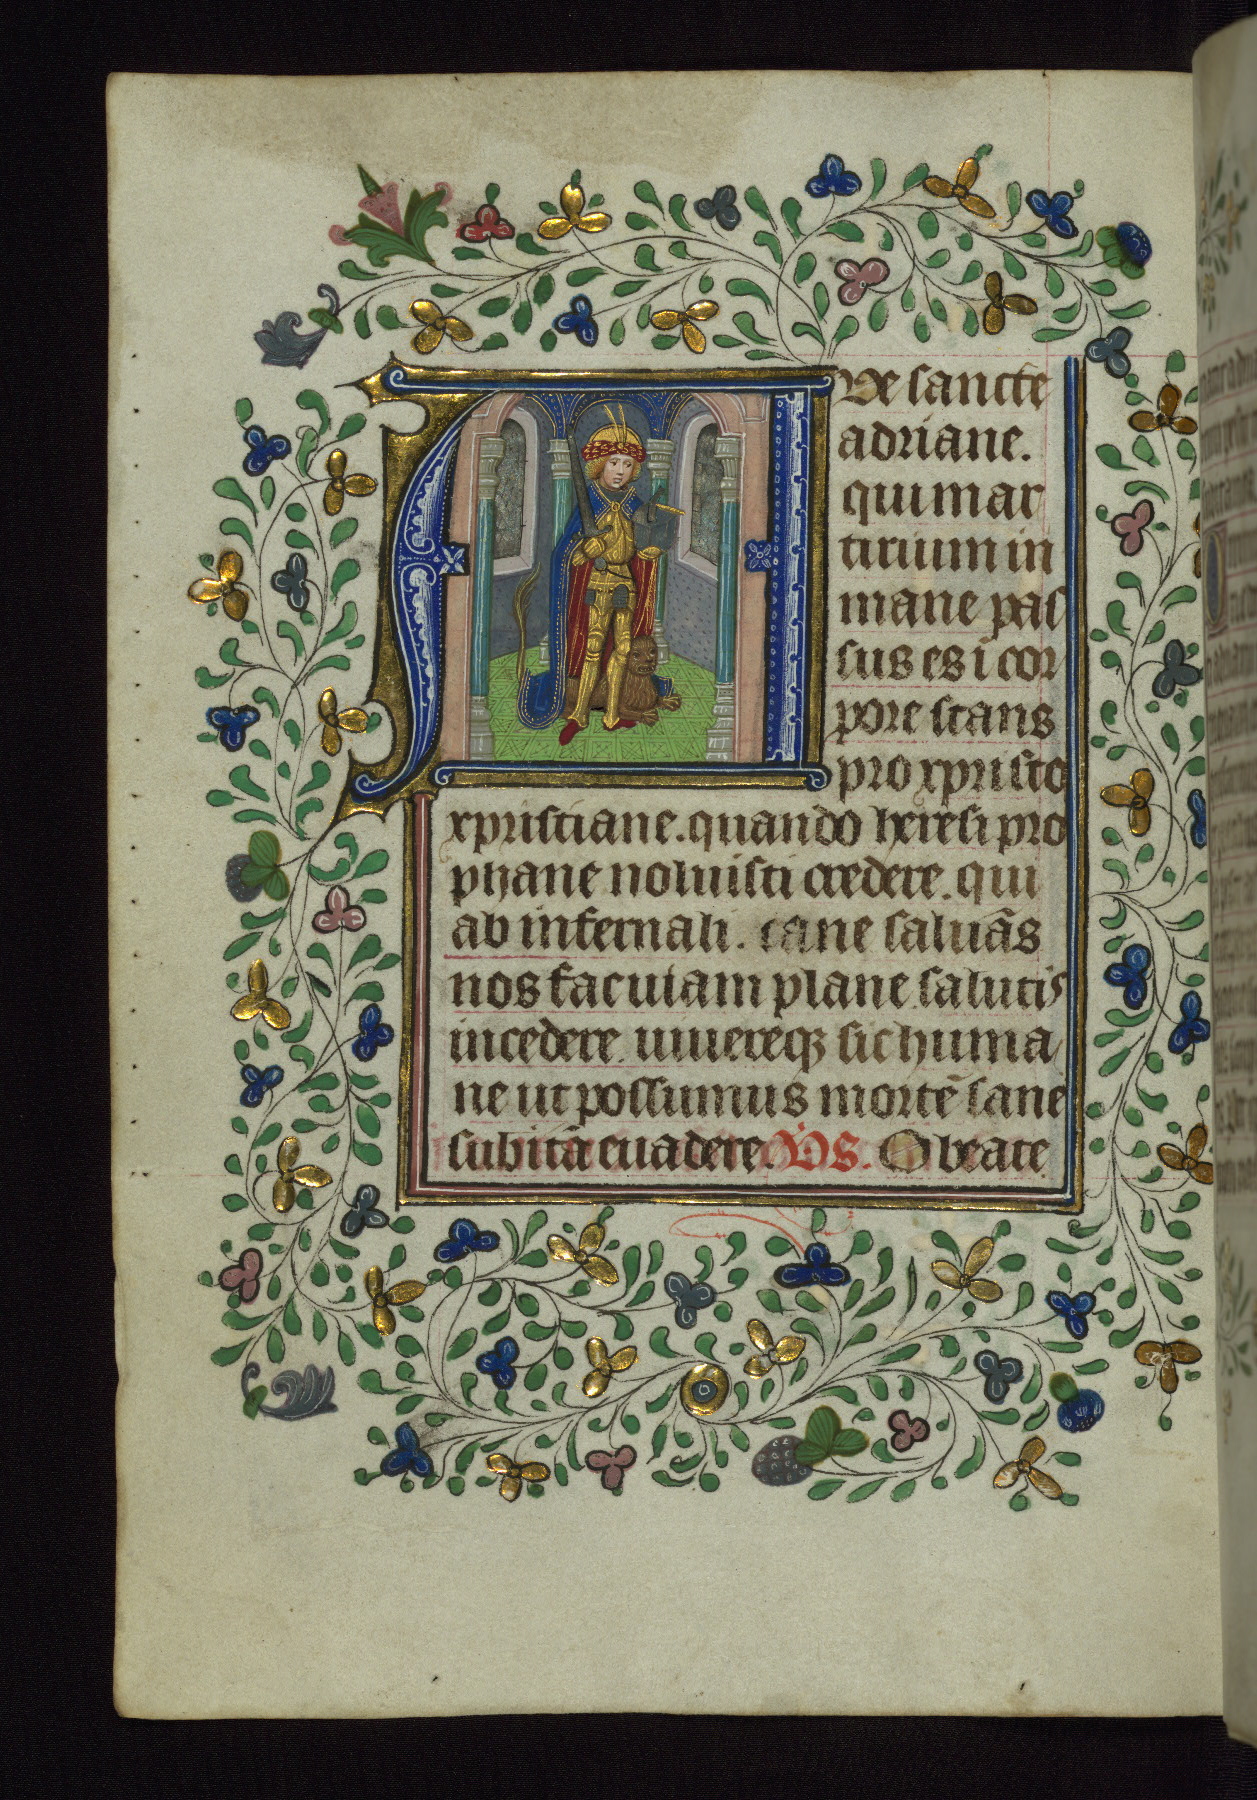 Aue sancte
adriane.
qui mar
tirium in
mane pas
sus es ī cor
pore stans
pro xpristo
xpristiane. quando heresi pro
phane noluisti credere. qui
ab infernali. cane saluās
nos fac uiam plane. salutis
incedere. uiuereqꝫ sic huma
ne ut possumus mortē sane
subitā euadere. V̇S. O beate